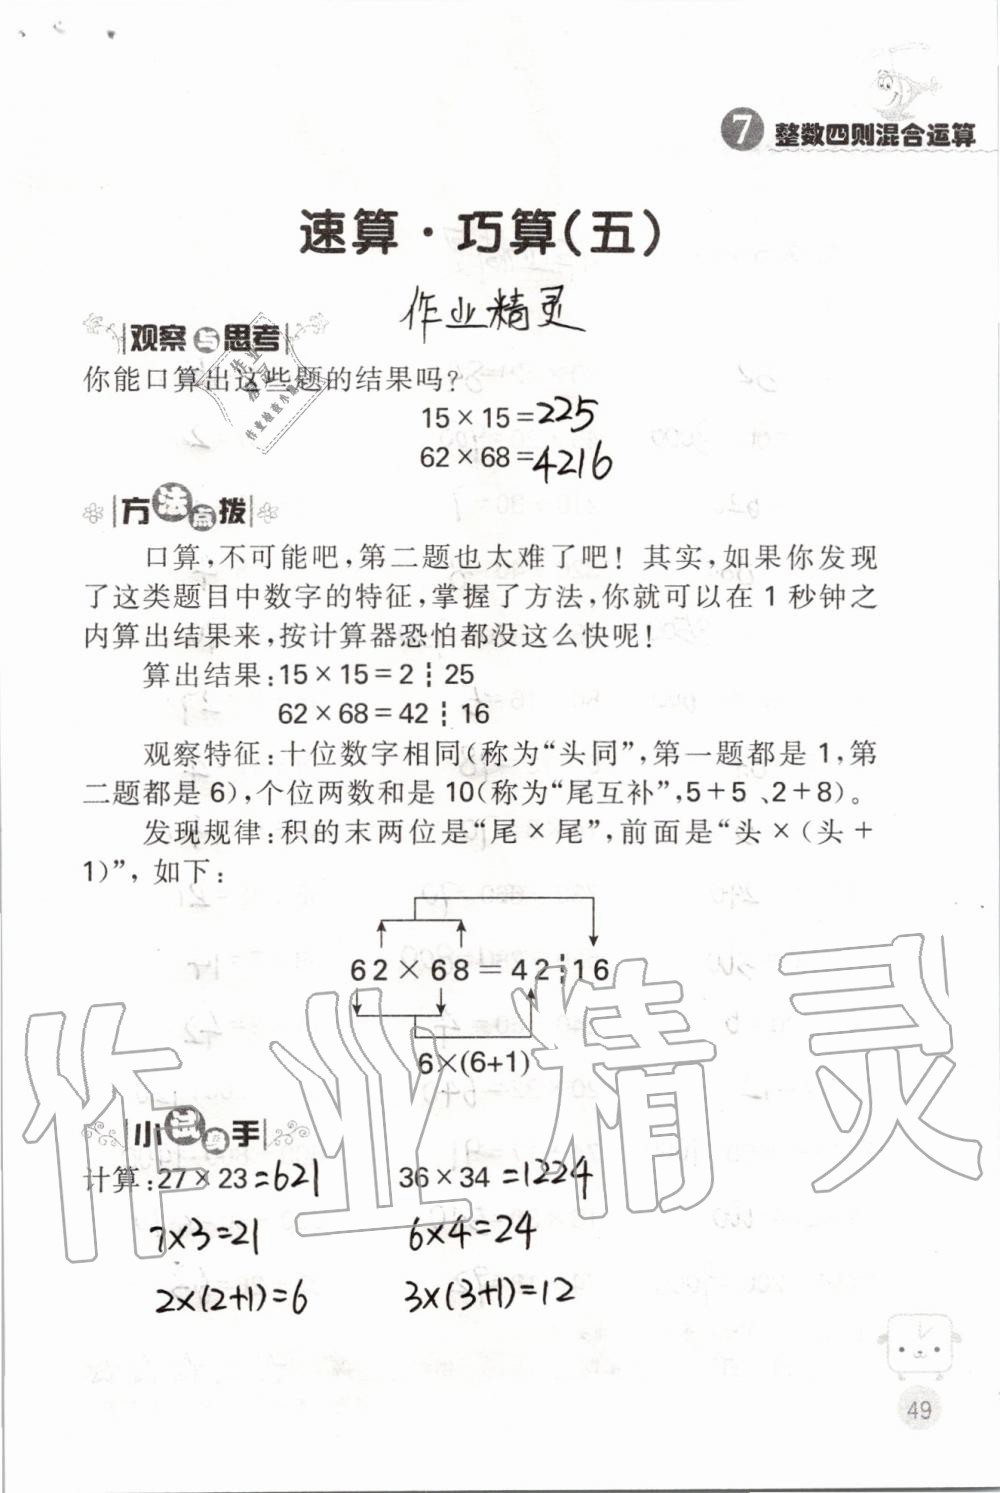 7 整数四则混合运算
速算·巧算(五)
作业精灵
观察与思考
你能口算出这些题的结果吗?
15×15=225
62×68=4216
方法点拨
口算,不可能吧,第二题也太难了吧!其实,如果你发现
了这类题目中数字的特征,掌握了方法,你就可以在1秒钟之
内算出结果来,按计算器恐怕都没这么快呢!
算出结果:15×15=2┆25
62×68=42┆16
观察特征:十位数字相同(称为“头同”,第一题都是1,第
二题都是6),个位两数和是10(称为“尾互补”,5+5、2+8)。
发现规律:积的末两位是“尾×尾”,前面是“头×(头+
1)”,如下:
62×68=42┆16
6×(6+1)
小试身手
计算:27×23=621 36×34=1224
7×3=21 6×4=24
2×(2+1)=6 3×(3+1)=12
作业精灵
49